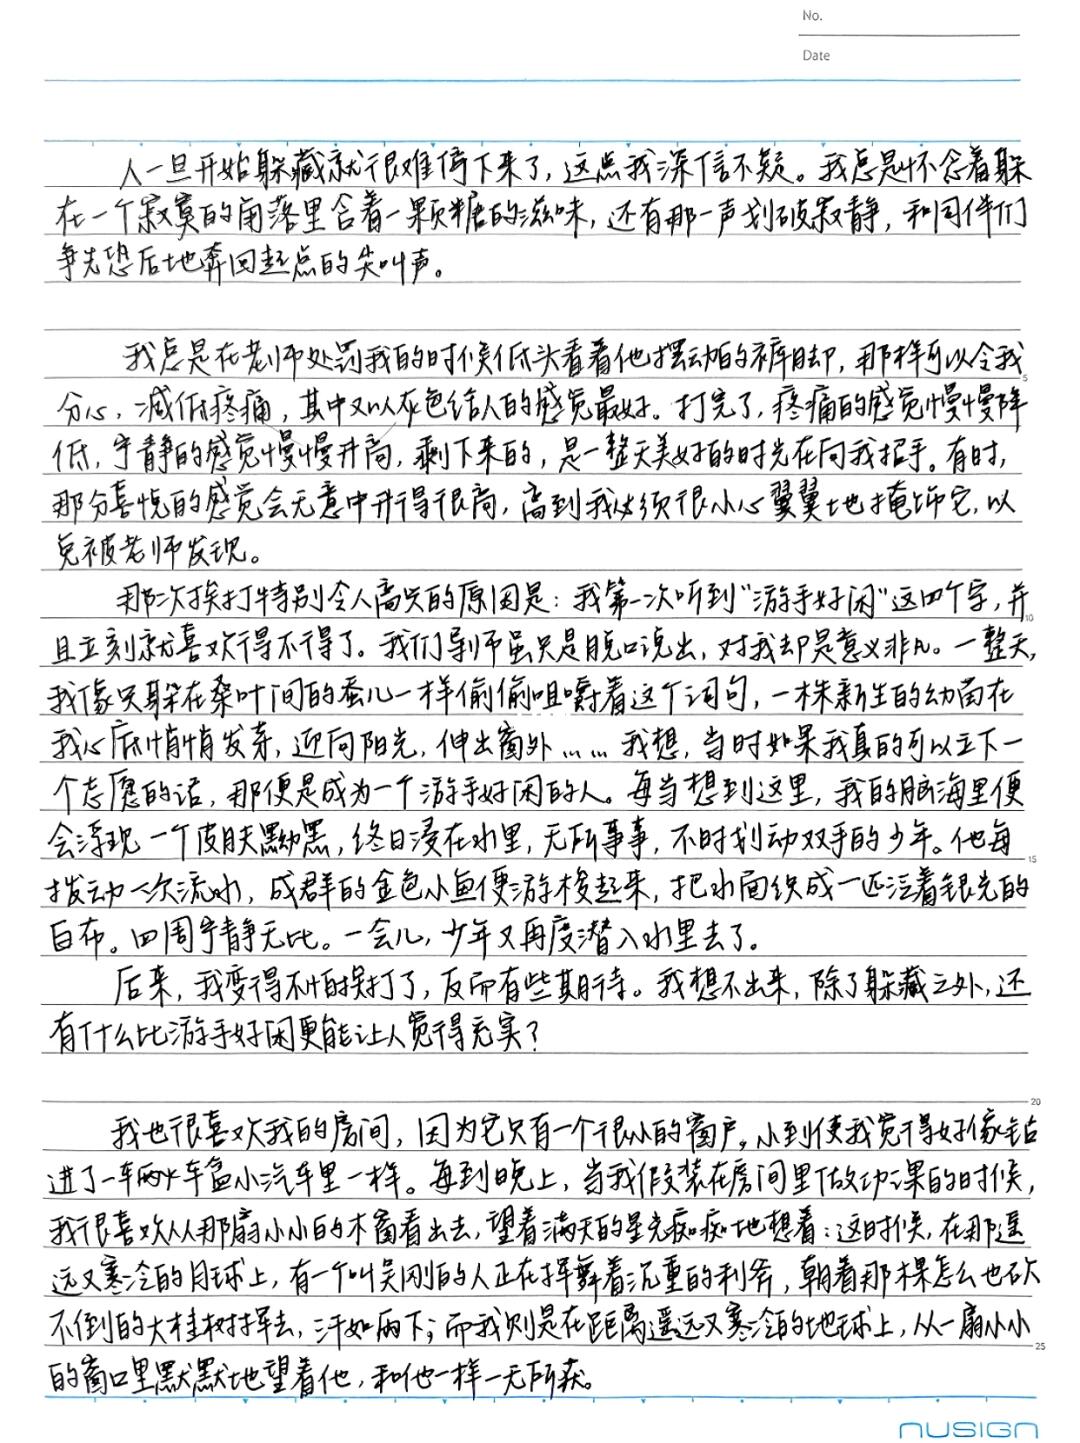 No.
Date
人一旦开始躲藏就很难停下来了，这点我深信不疑。我总是怀念着躲
在一个寂寞的角落里含着一颗糖的滋味，还有那一声划破寂静，和同伴们
争先恐后地奔回起点的尖叫声。
我总是在老师处罚我的时候低头看着他摆动的裤脚，那样可以令我
分心，减低疼痛，其中又以灰色给人的感觉最好。打完了，疼痛的感觉慢慢降
低，宁静的感觉慢慢升高，剩下来的，是一整天美好的时光在向我招手。有时，
那分喜悦的感觉会无意中升得很高，高到我必须很小心翼翼地掩饰它，以
免被老师发现。
那次挨打特别令人高兴的原因是：我第一次听到“游手好闲”这四个字，并
且立刻就喜欢得不得了。我们导师虽只是脱口说出，对我却是意义非凡。一整天，
我像只躲在桑叶间的蚕儿一样偷偷咀嚼着这个词句，一株新生的幼苗在
我心底悄悄发芽，迎向阳光，伸出窗外……我想，当时如果我真的可以立下一
个志愿的话，那便是成为一个游手好闲的人。每当想到这里，我的脑海里便
会浮现一个皮肤黝黑，终日浸在水里，无所事事，不时划动双手的少年。他每
拨动一次流水，成群的金色小鱼便游梭起来，把水面织成一匹泛着银光的
白布。四周宁静无比。一会儿，少年又再度潜入水里去了。
后来，我变得不怕挨打了，反而有些期待。我想不出来，除了躲藏之外，还
有什么比游手好闲更能让人觉得充实？
我也很喜欢我的房间，因为它只有一个很小的窗户，小到使我觉得好像钻
进了一辆火车盒小汽车里一样。每到晚上，当我假装在房间里做功课的时候，
我很喜欢从那扇小小的木窗看出去，望着满天的星光痴痴地想着：这时候，在那遥
远又寒冷的月球上，有一个叫吴刚的人正在挥舞着沉重的利斧，朝着那棵怎么也砍
不倒的大桂树挥去，汗如雨下；而我则是在距离遥远又寒冷的地球上，从一扇小小
的窗口里默默地望着他，和他一样一无所获。
5
10
15
20
25
nusign